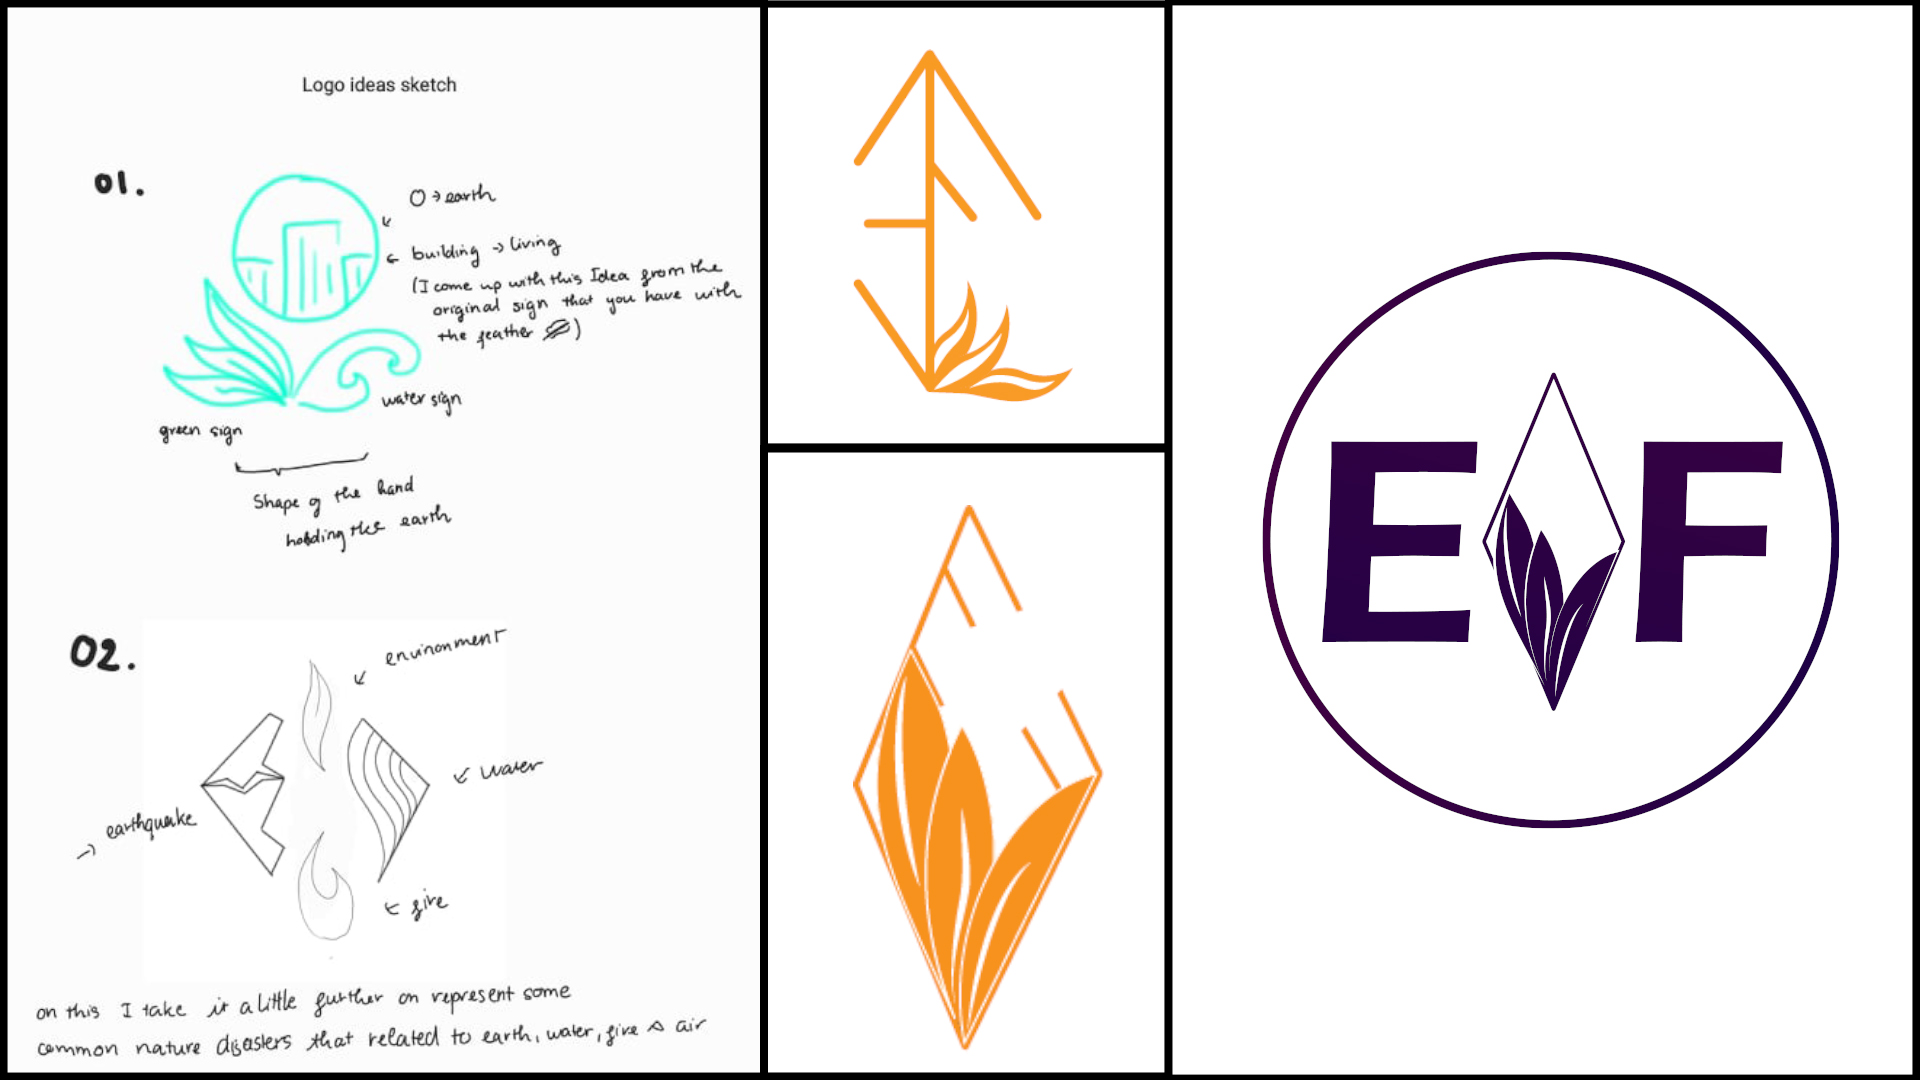 Logo ideas sketch
01.
O → earth
building → living
(I come up with this Idea from the
original sign that you have with
the feather )
water sign
green sign
Shape of the hand
holding the earth
02.
environment
water
earthquake
fire
on this I take it a little further on represent some
common nature disasters that related to earth, water, fire & air
E F